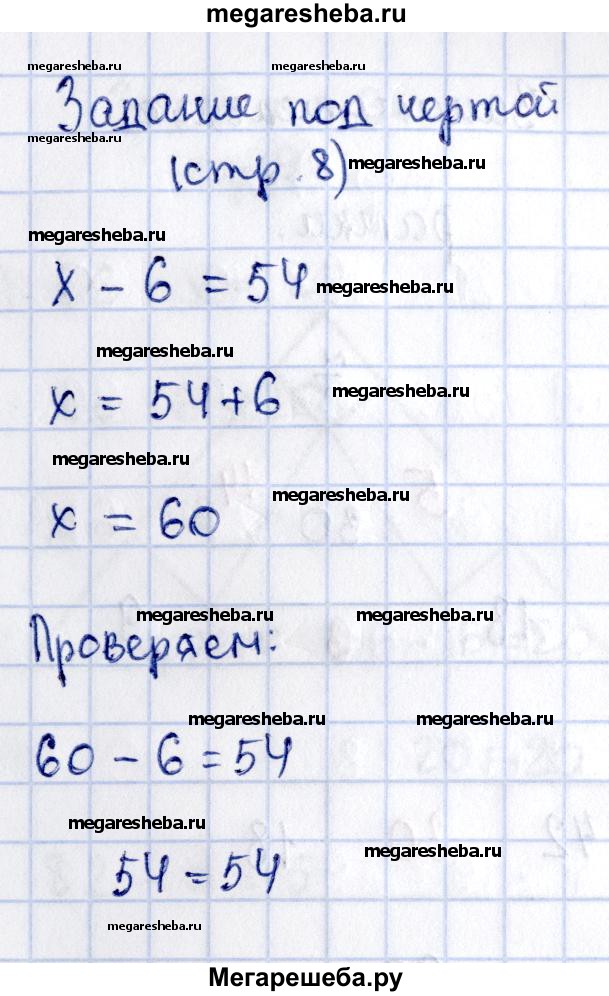 megaresheba.ru
megaresheba.ru megaresheba.ru
Задание под чертой
megaresheba.ru
(стр. 8) megaresheba.ru
megaresheba.ru
x - 6 = 54 megaresheba.ru
megaresheba.ru
x = 54+6 megaresheba.ru
megaresheba.ru
x = 60 megaresheba.ru
megaresheba.ru megaresheba.ru
Проверяем:
megaresheba.ru megaresheba.ru
60 - 6 = 54
megaresheba.ru
54 = 54 megaresheba.ru
megaresheba.ru
Мегарешеба.ру